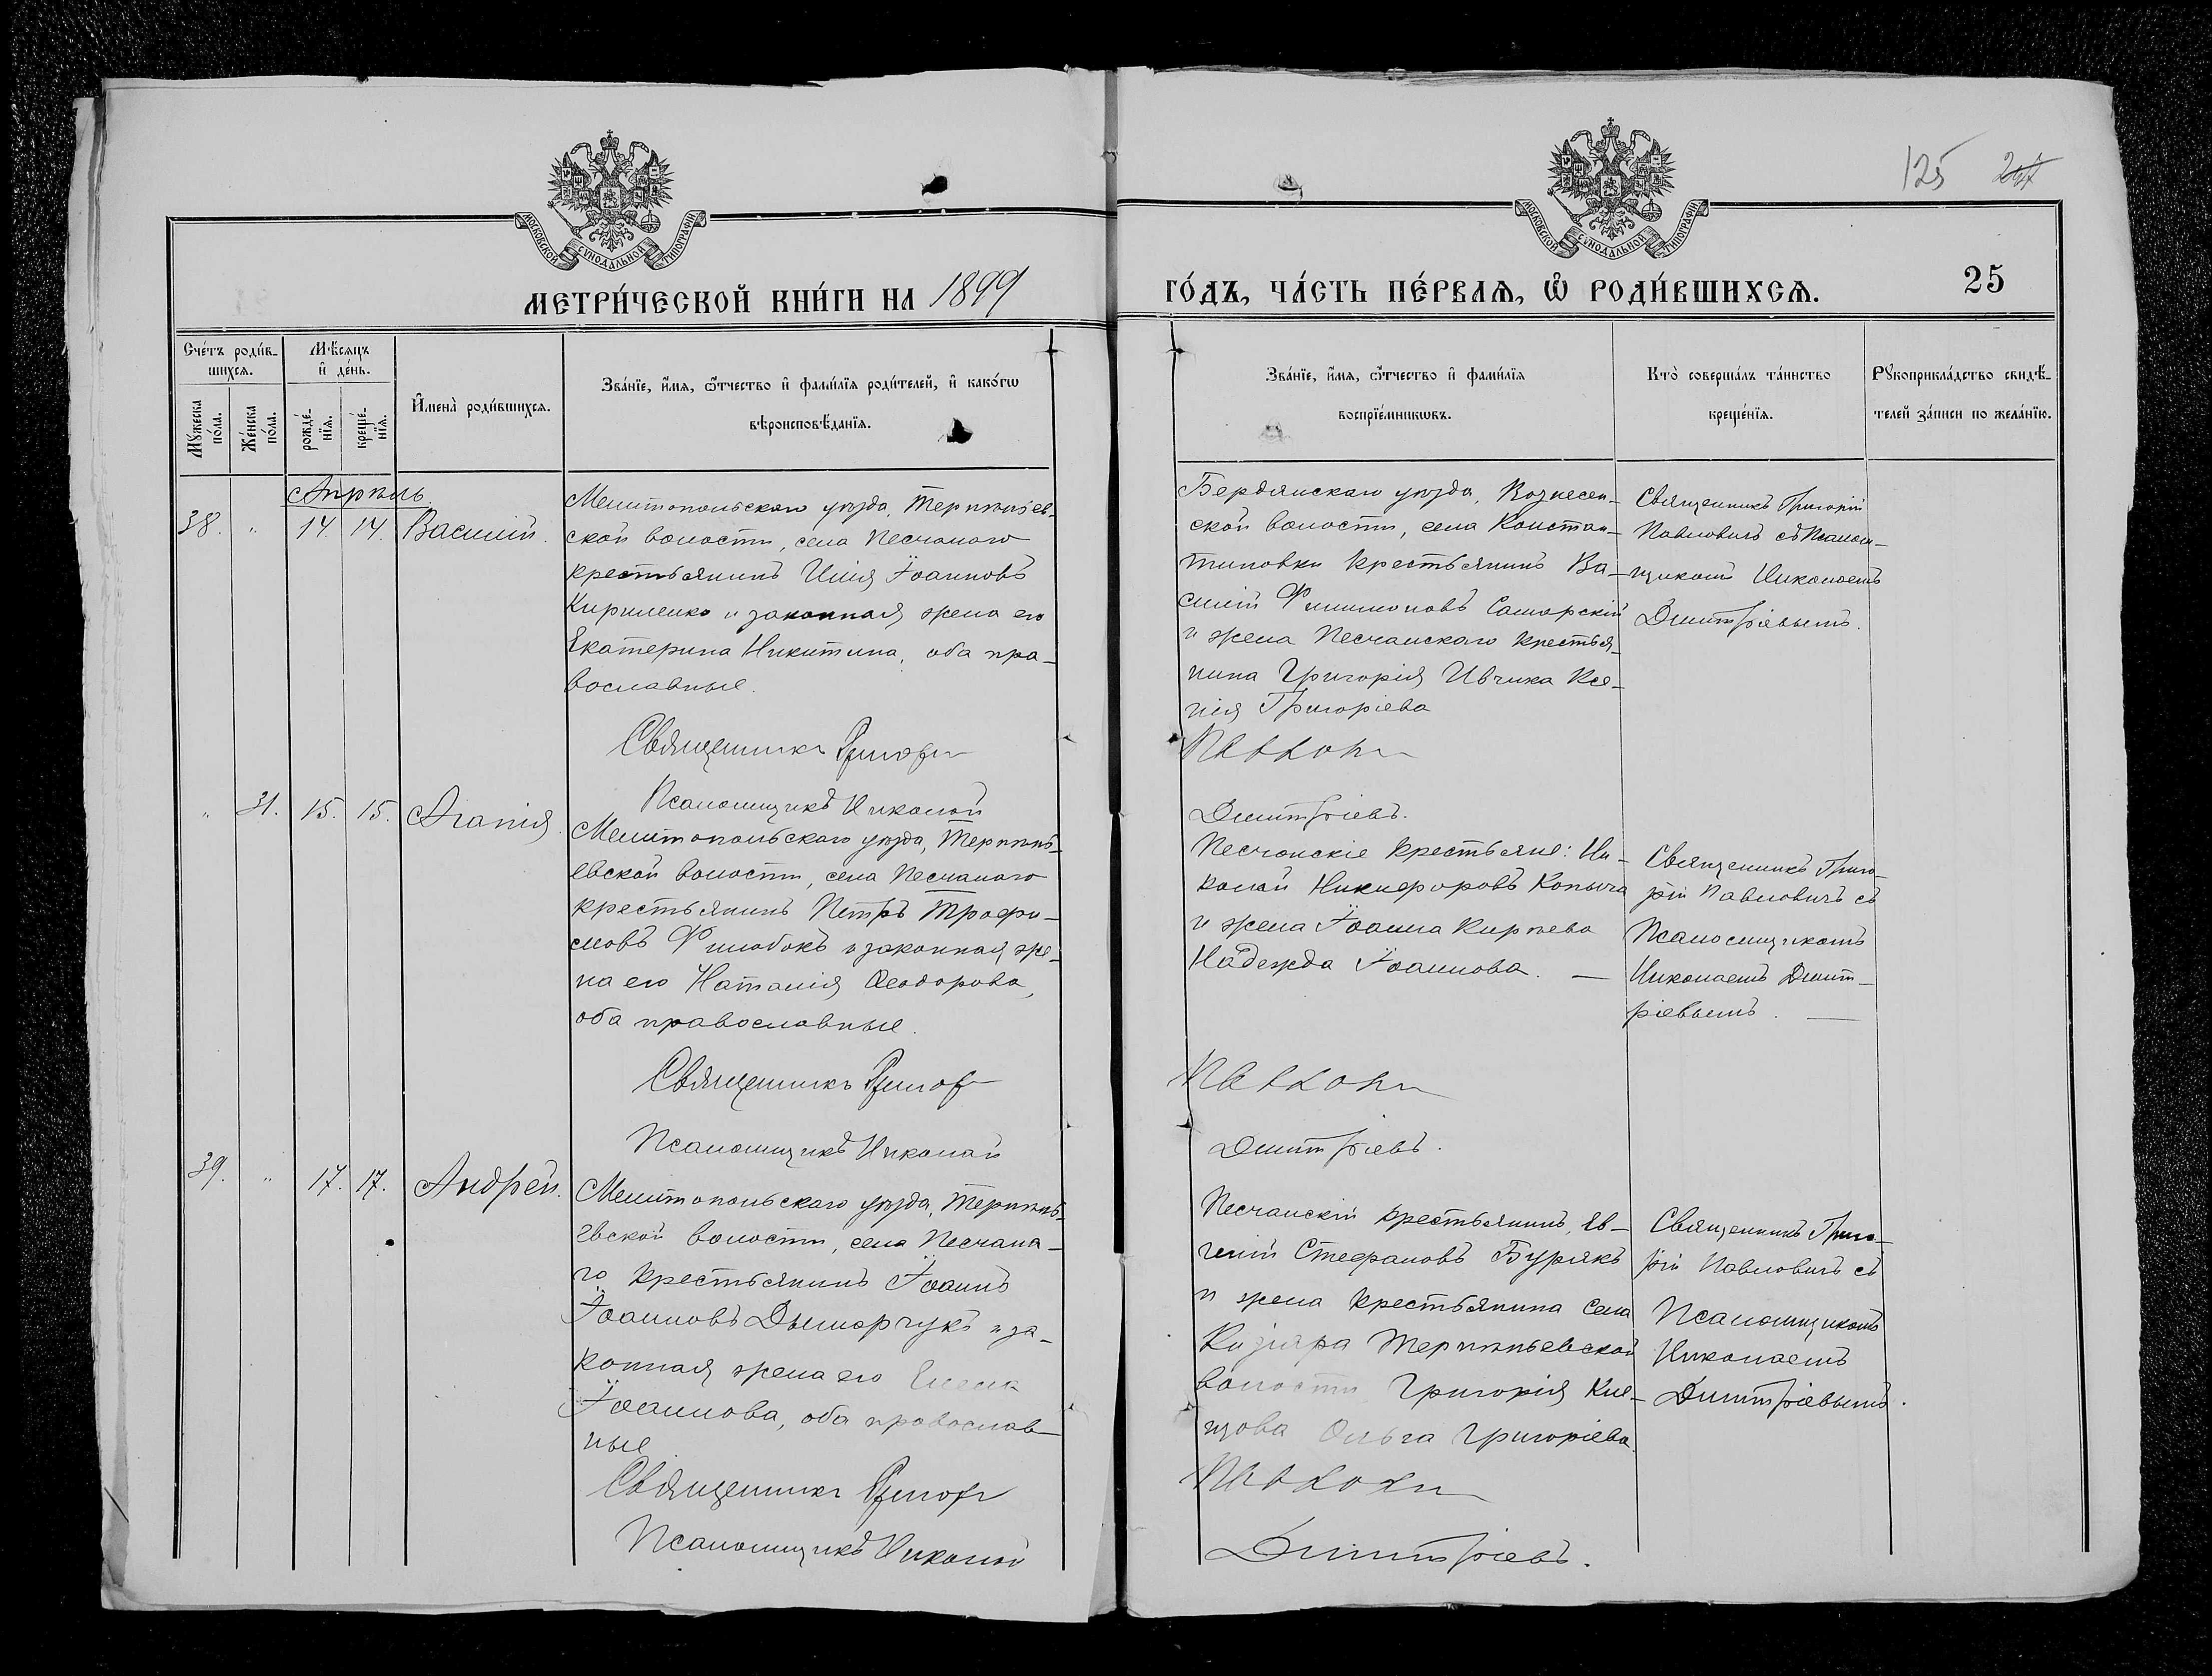 125
МОСКОВСКОЙ СѴНОДАЛЬНОЙ ТИПОГРАФІИ
МОСКОВСКОЙ СѴНОДАЛЬНОЙ ТИПОГРАФІИ
МЕТРИ́ЧЕСКОЙ КНИ́ГИ НА 1899
ГО́ДЪ, ЧА́СТЬ ПЕ́РВАѦ, Ѽ РОДИ́ВШИХСѦ.
25
Сче́тъ роди́в-
шихсѧ.
Мꙋжеска по́ла.
Же́нска по́ла.
Мѣ́сѧцъ
и҆ де́нь.
рожде́-нїѧ.
креще́-нїѧ.
И҆мена̀ роди́вшихсѧ.
Зва́нїе, и҆́мѧ, ѻ҆́тчество и҆ фами́лїѧ роди́телей, и҆ како́гѡ
вѣроисповѣ́данїѧ.
Зва́нїе, и҆́мѧ, ѻ҆́тчество и҆ фами́лїѧ
воспрїе́мникѡвъ.
Кто̀ соверша́лъ та́инство
креще́нїѧ.
Рꙋкоприкла́дство свидѣ́-
телей за́писи по жела́нїю.
Апрѣль
38. " 14. 14. Василій.
Мелитопольскаго уѣзда, Терпѣніев-
ской волости, села Песчанаго
крестьянинъ Илія Іоанновъ
Кириленко и законная жена его
Екатерина Никитина, оба пра-
вославные.
Священникъ Григорій
Псаломщикъ Николай
Бердянскаго уѣзда, Вознесен-
ской волости, села Констан-
тиновки крестьянинъ Ва-
силій Филимоновъ Самарскій
и жена Песчанскаго крестья-
нина Григорія Ивчика Ксе-
нія Григоріева
Павловичъ
Димитріевъ.
Священникъ Григорій
Павловичъ съ Псалом-
щикомъ Николаемъ
Димитріевымъ.
" 31. 15. 15. Агапія
Мелитопольскаго уѣзда, Терпѣнь-
евской волости, села Песчанаго
крестьянинъ Петръ Трофи-
мовъ Филобокъ и законная же-
на его Наталія Ѳеодорова,
оба православные.
Священникъ Григор
Псаломщикъ Николай
Песчанскіе крестьяне: Ни-
колай Никифоровъ Копыча
и жена Іоанна Кирѣева
Надежда Іоаннова. —
Павловичъ
Димитріевъ.
Священникъ Григо-
рій Павловичъ съ
Псаломщикомъ
Николаемъ Димит-
ріевымъ. —
39. " 17. 17. Андрей.
Мелитопольскаго уѣзда, Терпѣнь-
евской волости, села Песчана-
го крестьянинъ Іоаннъ
Іоанновъ Дымарчукъ и за-
конная жена его Елена
Іоаннова, оба православ-
ные
Священникъ Григор
Псаломщикъ Николай
Песчанскій крестьянинъ, Ев-
геній Стефановъ Бурякъ
и жена крестьянина села
Кизіяра Терпѣньевской
волости Григорія
Ольга Григоріева.
Павловичъ
Димитріевъ.
Священникъ Григо-
рій Павловичъ съ
Псаломщикомъ
Николаемъ
Димитріевымъ.